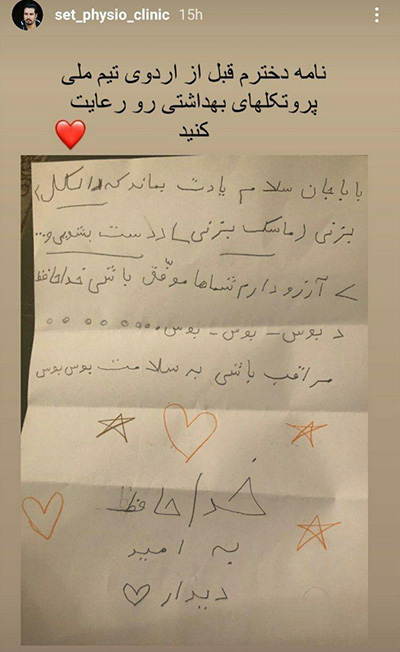 set_physio_clinic 15h
نامه دخترم قبل از اردوی تیم ملی
پروتکلهای بهداشتی رو رعایت
کنید
باباجان سلام یادت بماند که (الکل)
بزنی (ماسک بزنی) دست بشویی و...
آرزو دارم شماها موفّق باشی خداحافظ
د بوس - بوس - بوس
مراقب باشی به سلامت بوس بوس
خداحافظ
به امید
دیدار